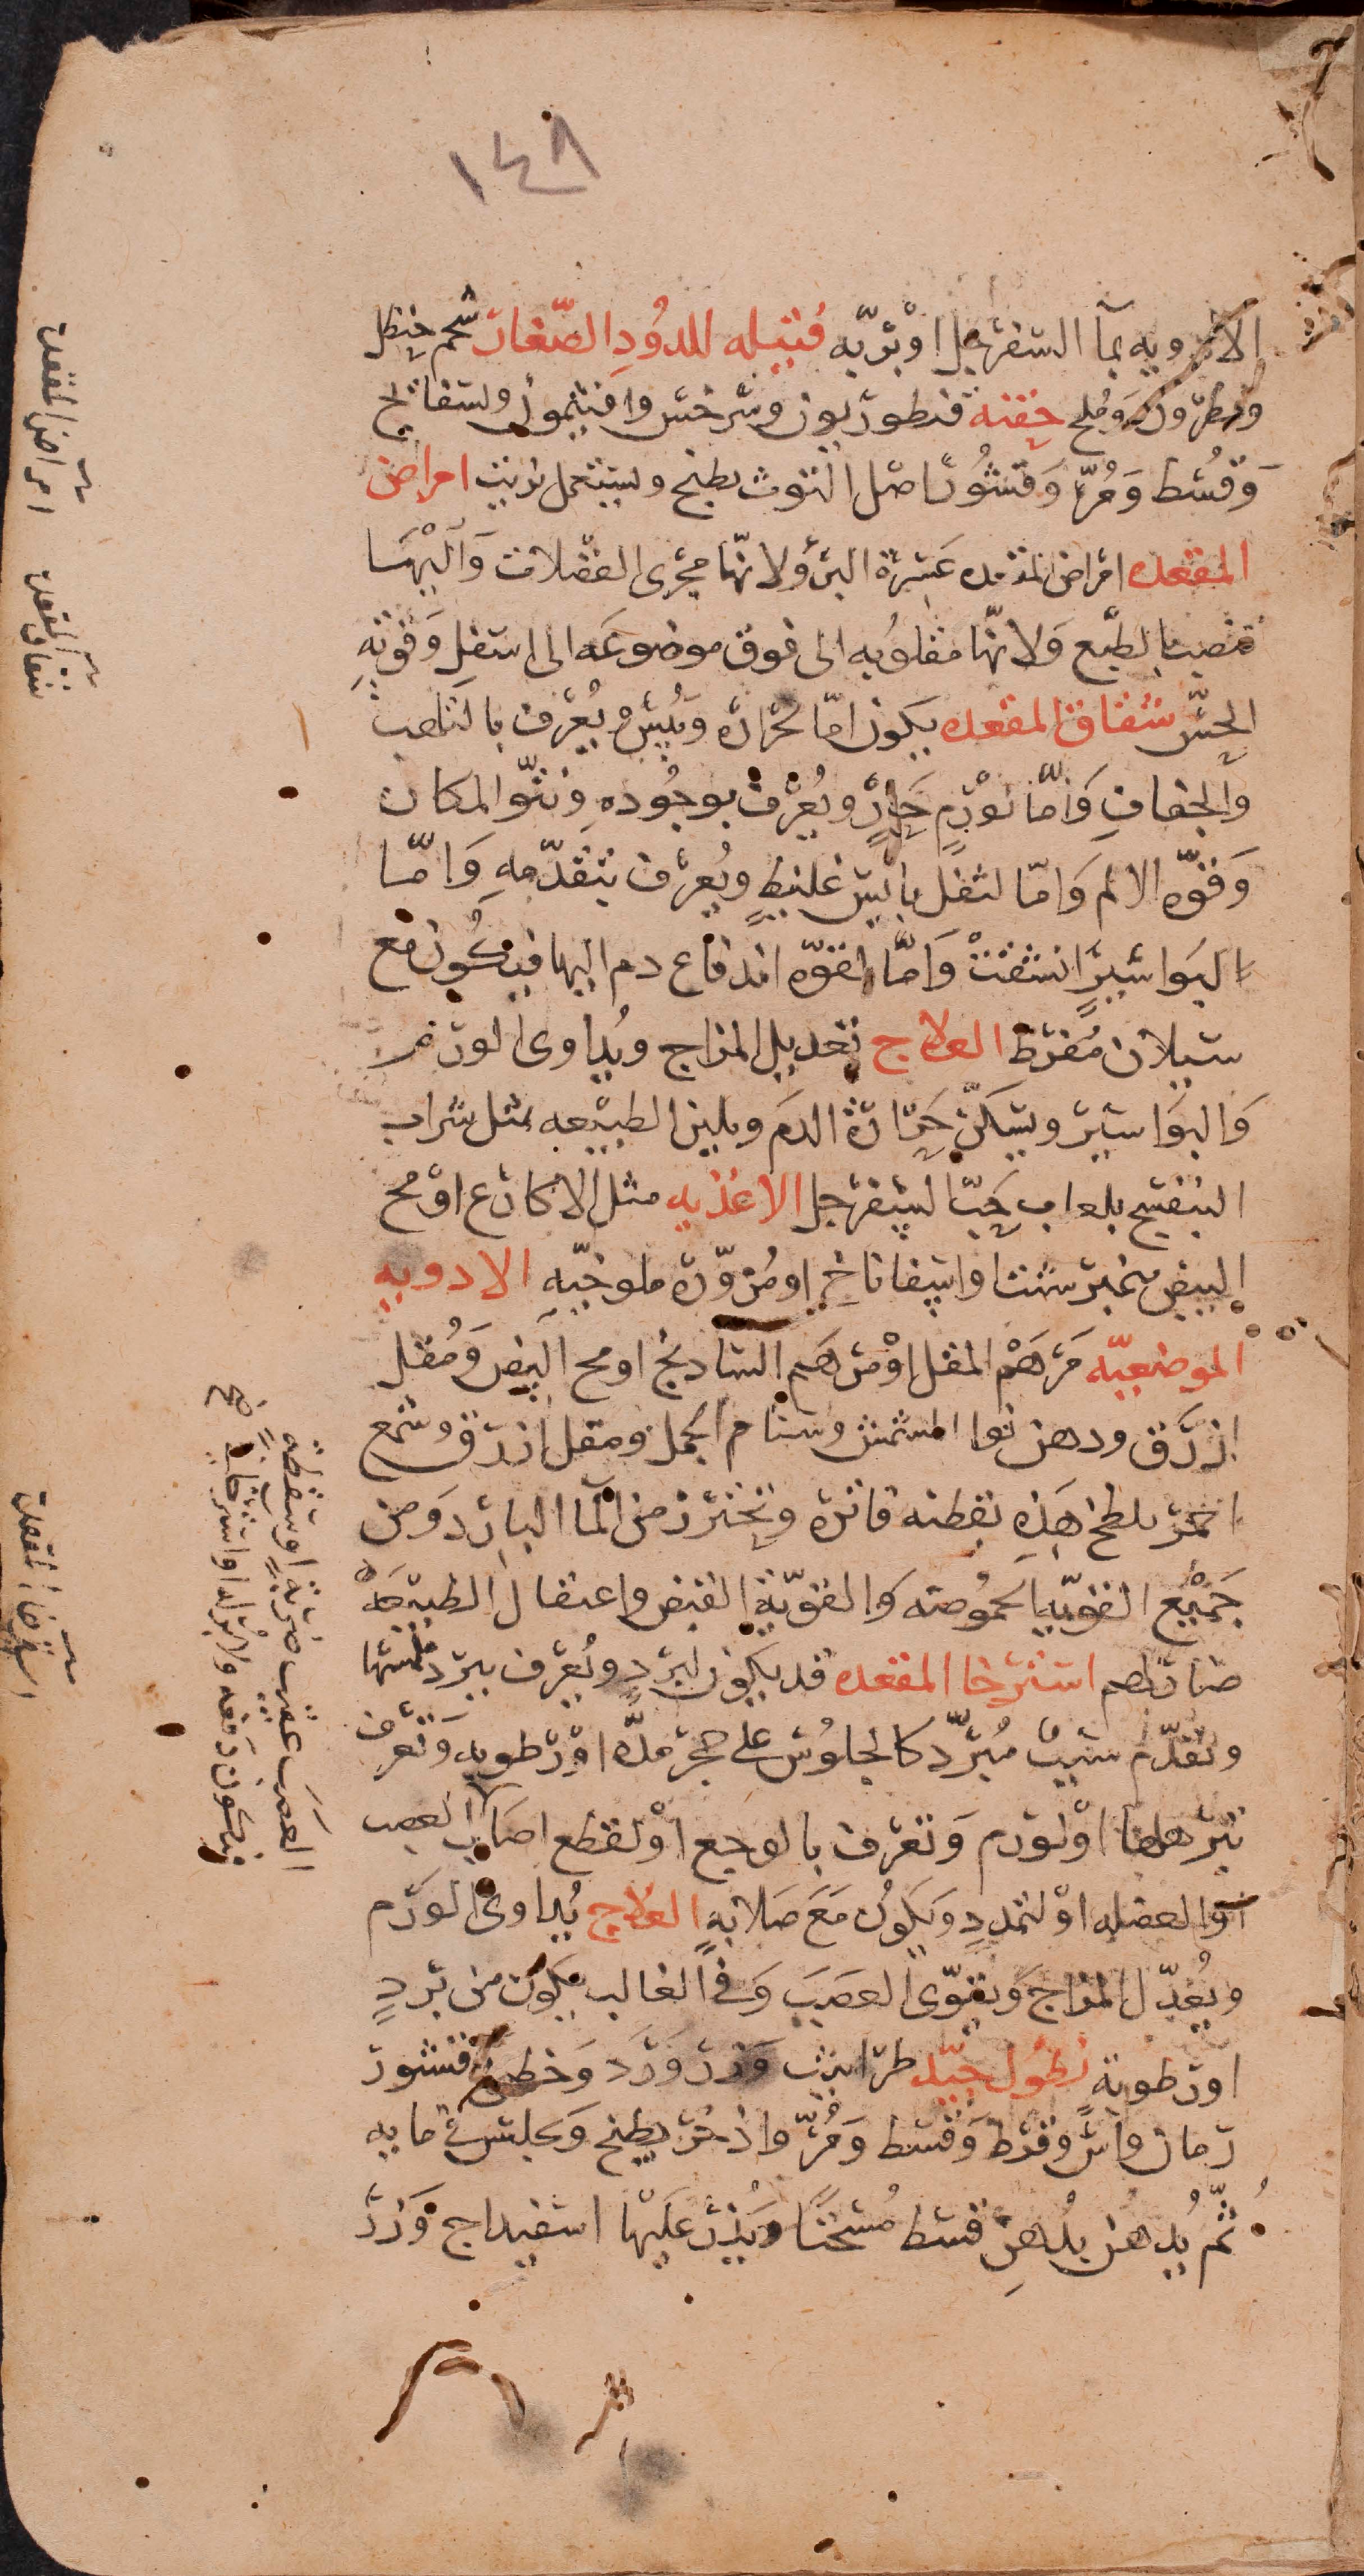 ١٤٨
الادويه بمآ السفرجل او بربّه فتيله للدُود الصّغار شحم حنظل
ونطرون وملح حقنه قنطوريون وسرخس وافتيمون وبسفايج
وَقُسْط وَمُرّ وَقشُور اصل التوت يطبخ ويستعمل بزيت امراض
المقعده امراض المقعده عَسِرَة البرؤ لانّها مجرى الفضلات وَالَيْهَا
تنصب بالطبع وَلانّها مقلوُبه الى فوق موضوعَه الى اسفل وَقوّتهِ
الحِسّ شقاق المقعده يكون امّا لحرارة ويُبْسٍ ويُعْرف بالتلهب
والجفافِ وَامّا لوَرَمٍ حَارٍّ ويُعْرف بوجُودهِ ونتوّ المكان
وَقوّه الالم وَامّا لثفل يابس غليظٍ ويُعرف بتقدّمهِ وَامّا
لبواسيرٍ انشقتْ وَامّا لقوّه اندفاع دم اليها فيكُون مع
سيلان مُفرط العلاج تعديل المزاج ويُداوى الورَم
وَالبوَاسير ويسَكّن حَرَارَة الدَم ويلين الطبيعه بمثل شراب
البنفسج بلعاب حَبّ السفرجل الاغذيه مثل الاكارع او مح
البيض نيمبرشت او اسفاناخ او مُزوّرة ملوخيّه الادويه
الموضعيّه مَرْهَم المقل او مرهَم الشادنج او مح البيض وَمُقل
ازرَق ودهن نوا المشمش وسنام الجمل ومقل ازرق وشمع
احمر يلطخ هَذِه بقطنه فاتره ويحترز من المآ البارد وَمن
جَميْع القويّه الحموُضه وَالقويّة القبض واعتقال الطبيعَه
ضار لهم استرخا المقعده قد يكون لبَرْدٍ ويُعْرف ببرد ملمسها
وتقدّم سَبب مُبرّد كالجلوُس على حجر مدّه او رطوبه وتعرف
بترهلها او لورَم وَتعرف بالوجع او لقطع اصَاب العصب
اوالعضله او لتمدد وَيكوُن مَعَ صَلابه العلاج يُداوى الوَرَم
ويُعَدّل المزاجَ وَيقوّى العَصَبَ وَفى الغالب يكون من بَردٍ
او رَطوبَةٍ نطوُل جيّد طراثيث وَزر وَرَد وَخطمى وقشور
رمان واس وقرط وَقسط وَمُرّ واذخر يطبخ وَيجلس فى مايه
ثمّ يُدهَن بدُهن قسط مُسَخّنًا وَيُذَرّ عَلَيْهَا اسفيداج وَزرّ
امراض المقعدة
شقاق المقعدة
استرخا المقعدة
العصَب عقيب ضَرْبَةٍ اوسَقطَة
فيكون دَفعَه ولا بُرْءَ له او استرخا
صح